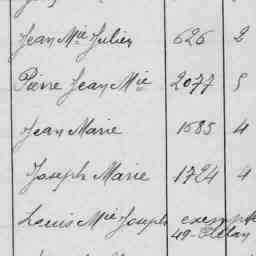 Jean Mie Julien 626 2
Pierre Jean Mie 2077 5
Jean Marie 1685 4
Joseph Marie 1724 4
Louis Mie Joseph exempté
49-